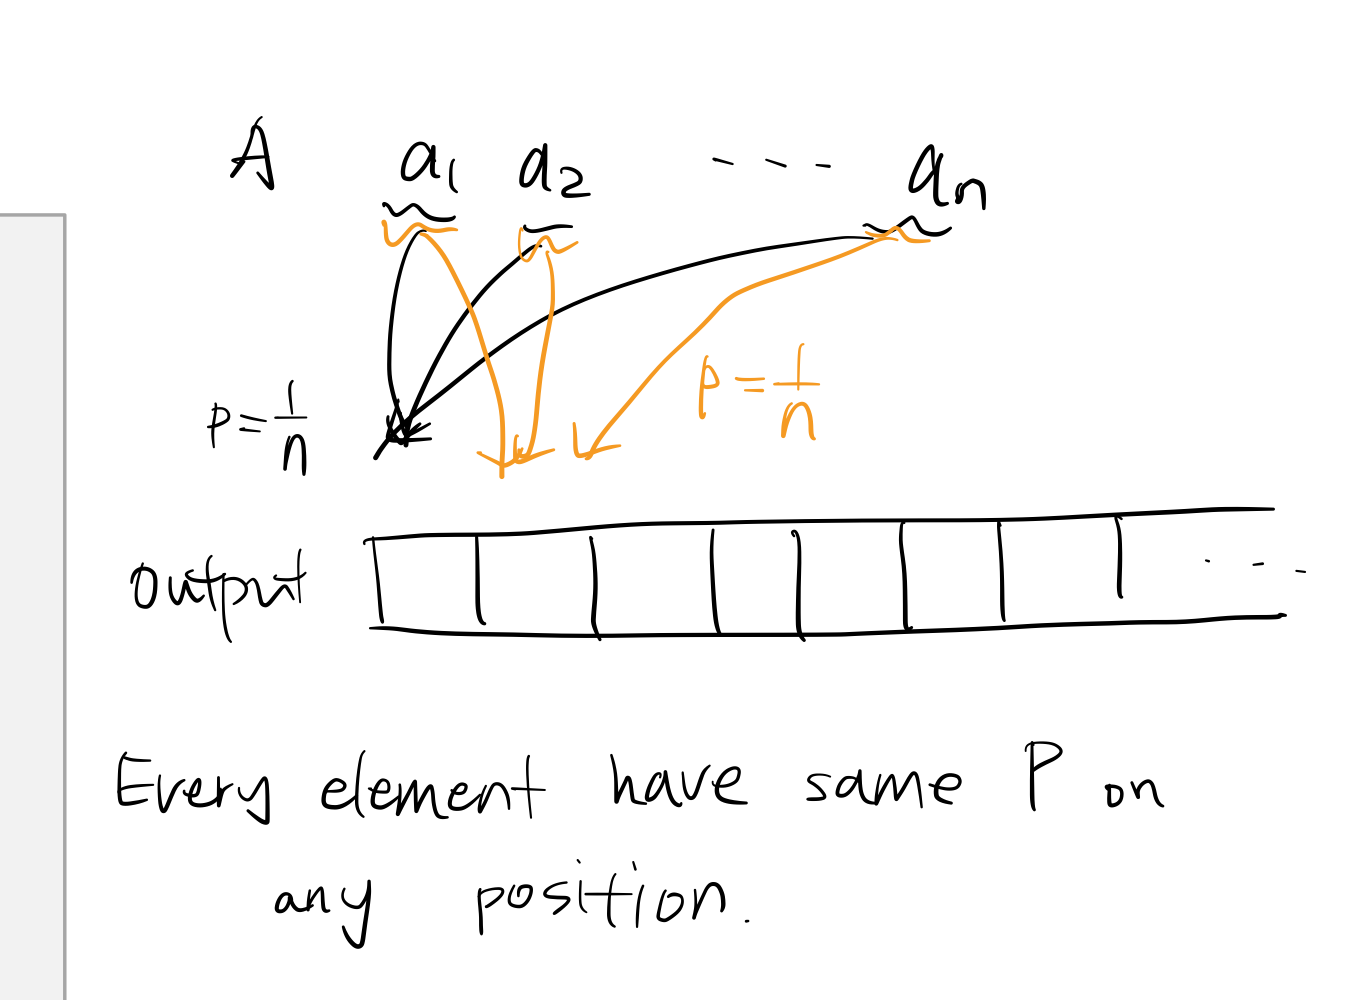 A a₁ a₂ - - - aₙ
P = 1/n
P = 1/n
output . - -
Every element have same P on
any position.